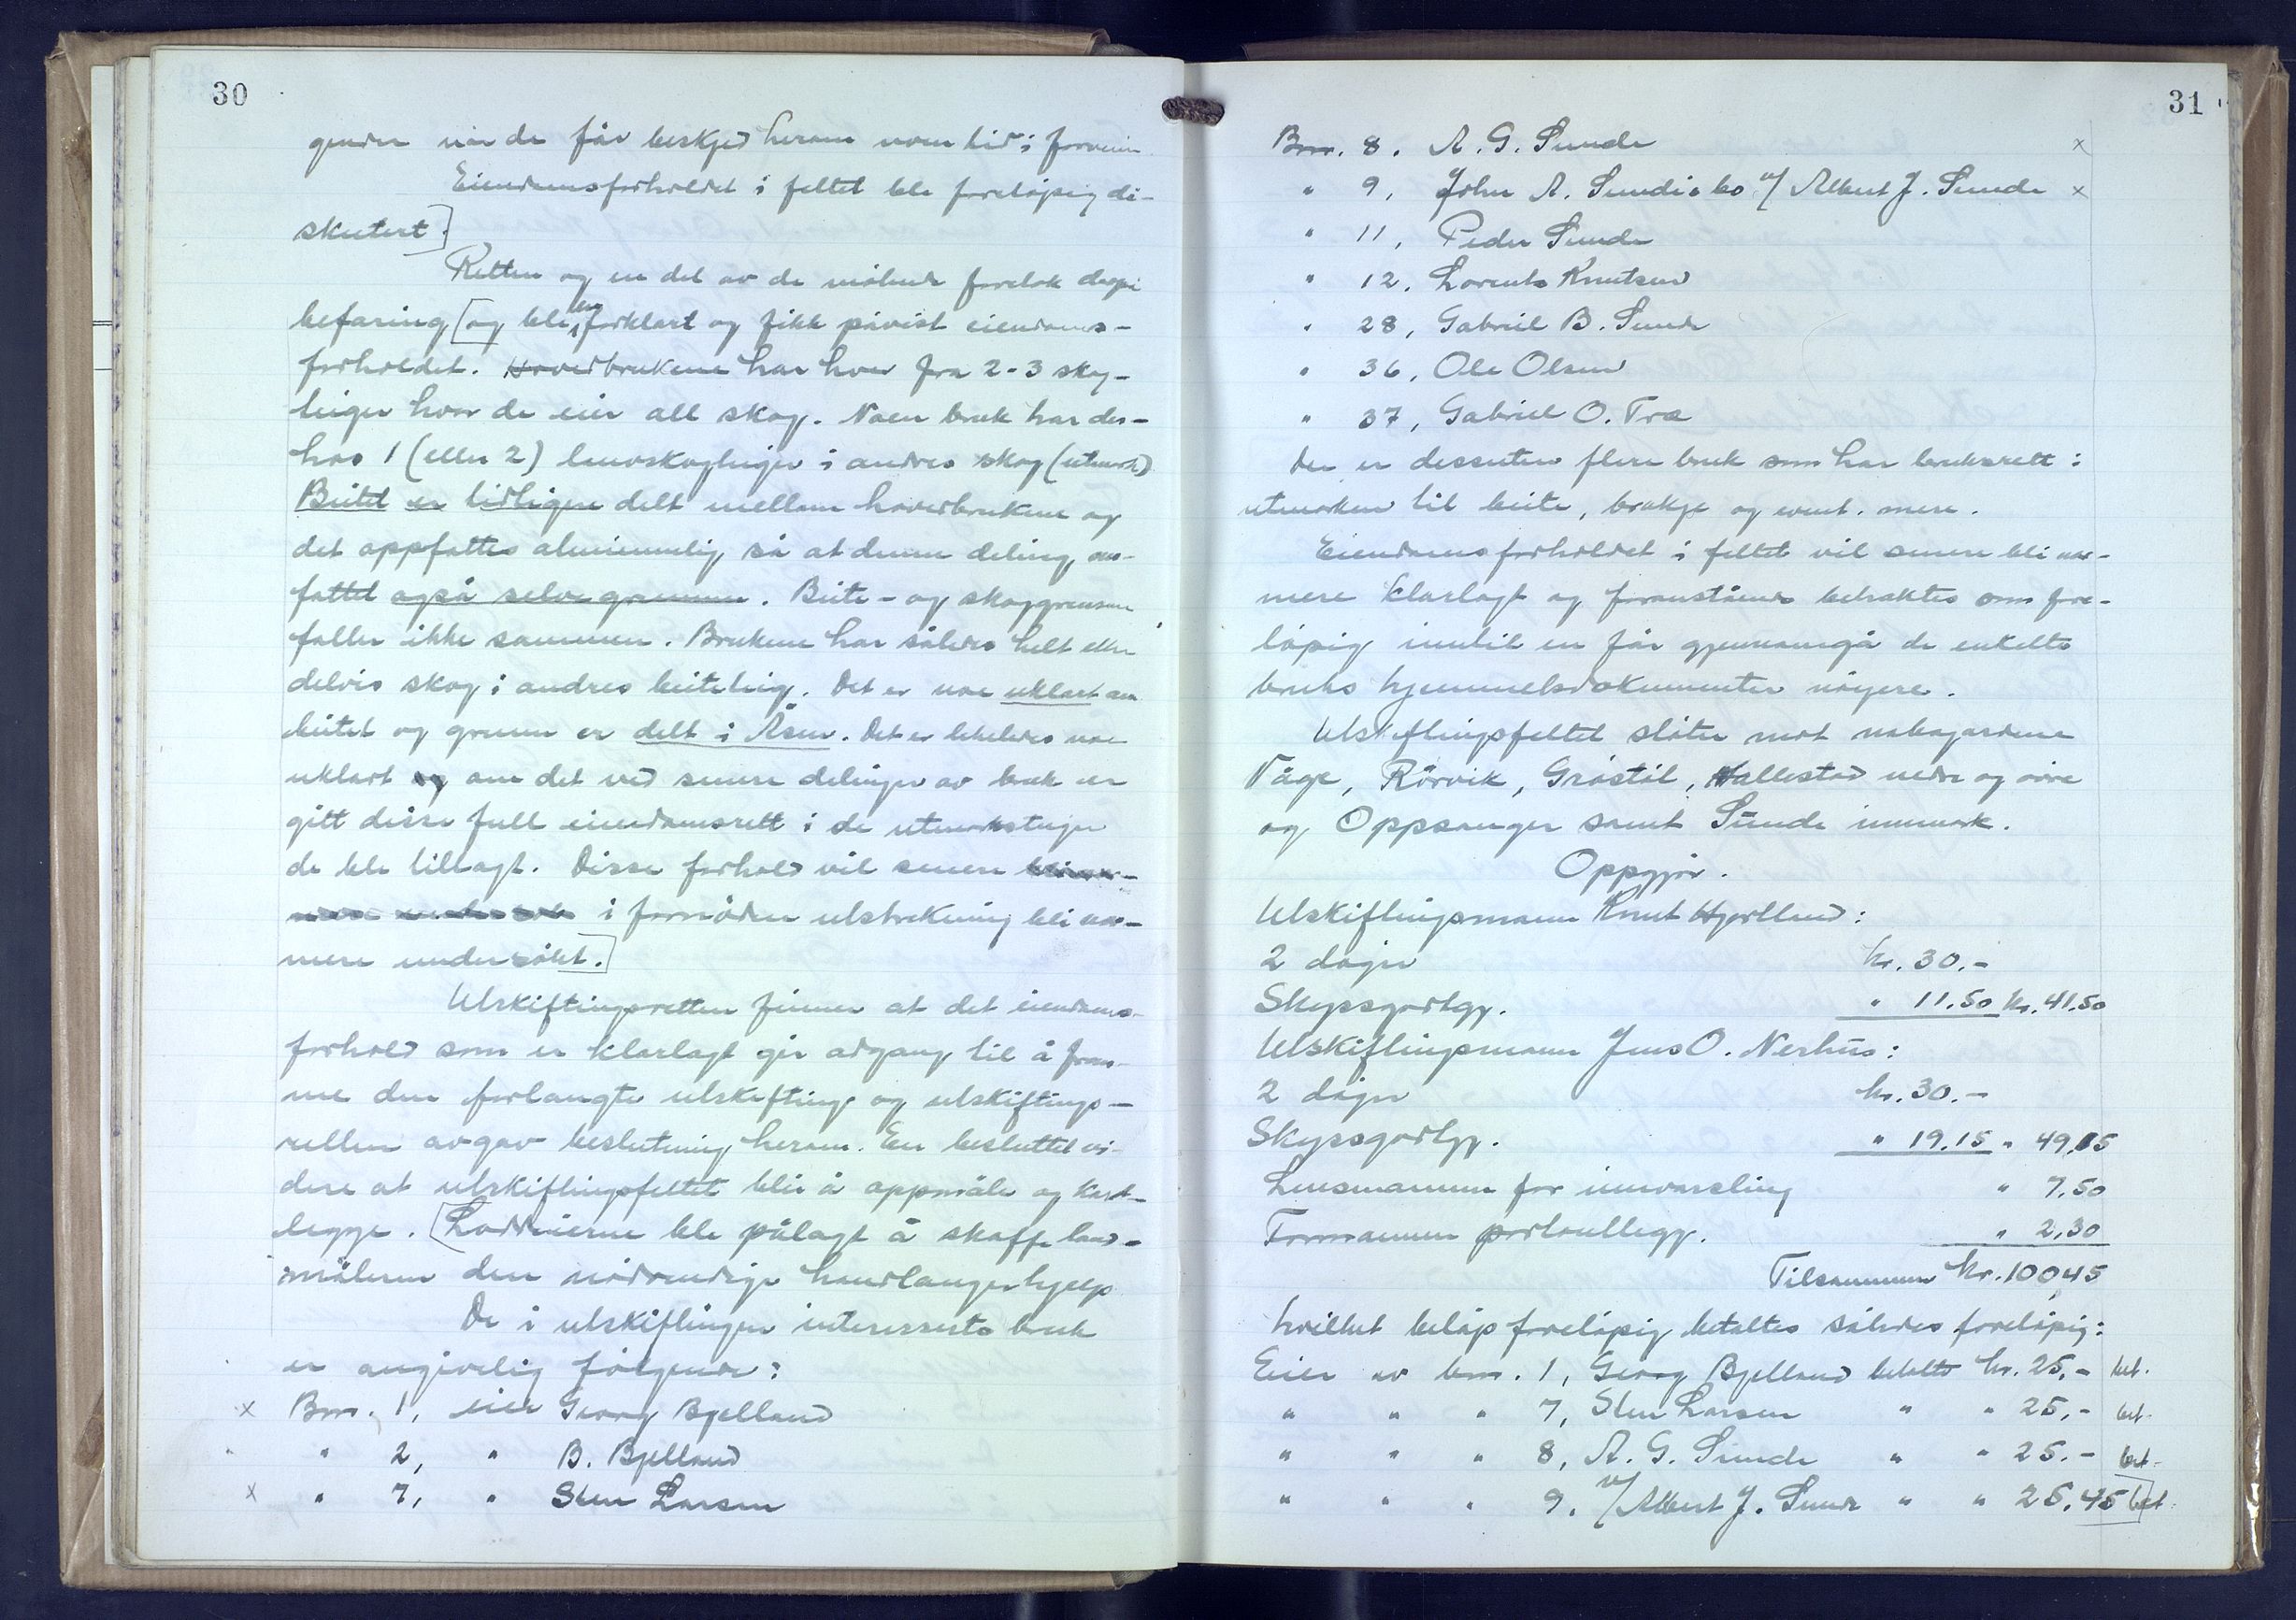 30
gender når de får beskjed herom noen tid i forveien
Eiendomsforholdet i feltet ble foreløpig di-
skutert].
Retten og en del av de møtende foretok derpå
befaring [og ble her forklart og fikk påvist eiendoms-
forholdet. Hovedbrukene har hver fra 2-3 skog-
teiger hvor de eier all skog. Noen bruk har des-
hos 1 (eller 2) lauvskogteiger i andres skog (utmark)
Beitet er tidligere delt mellom hovedbrukene og
det oppfattes alminnelig så at denne deling om-
fattet også selve grunnen. Beite- og skoggrensene
faller ikke sammen. Brukene har således helt eller
delvis skog i andres beiteteig. Det er noe uklart om
beitet og grunn er delt i Åsen. Det er likeledes noe
uklart og om det ved senere delinger av bruk er
gitt disse full eiendomsrett i de utmarksteiger
de ble tillagt. Disse forhold vil senere
i fornøden utstrekning bli nær-
mere undersøkt.]
Utskiftingsretten finner at det eiendoms-
forhold som er klarlagt gir adgang til å frem-
me den forlangte utskifting og utskiftings-
retten avgav beslutning herom. En besluttet vi-
dere at utskiftingsfeltet blir å oppmåle og kart-
legge. [Loddeierne ble pålagt å skaffe land-
måleren den nødvendige handlangerhjelp
De i utskiftingen interesserte bruk
er angivelig følgende:
x Bnr. 1, eier Georg Bjelland
" 2, " B. Bjelland
x " 7, " Sten Larsen
31
Bnr. 8. A. G. Sunde x
" 9, John A. Sundes bo v/ Albert J. Sunde x
" 11, Peder Sunde
" 12. Lorents Knutsen
" 28, Gabriel B. Sunde
" 36, Ole Olsen
" 37, Gabriel O. Træ
Der er dessuten flere bruk som har bruksrett i
utmarken til beite, brakje og event. mere.
Eiendomsforholdet i feltet vil senere bli nær-
mere klarlagt og foranstående betraktes som fore-
løpig inntil en får gjennomgå de enkelte
bruks hjemmelsdokumenter nøyere.
Utskiftingsfeltet støter mot nabogardene
Våge, Rørvik, Gråstøl, Hallestad nedre og øvre
og Oppsanger samt Sunde innmark.
Oppgjør.
Utskiftingsmann Knut Hjortland:
2 dager kr. 30.-
Skyssgodtgj. " 11.50 kr. 41.50
Utskiftingsmann Jens O. Nerhus:
2 dager kr. 30.-
Skyssgodtgj. " 19.15 " 49.15
Lensmannen for innvarsling " 7.50
Formannen portoutlegg. " 2,30
Tilsammen kr. 100,45
hvilket beløp foreløpig betaltes således foreløpig:
Eier av bnr. 1, Georg Bjelland betalte kr. 25,- bet.
" " " 7, Sten Larsen " " 25,- bet.
" " " 8, A. G. Sunde " " 25.- bet.
" " " 9. v/ Albert J. Sunde " " 25,45] bet.